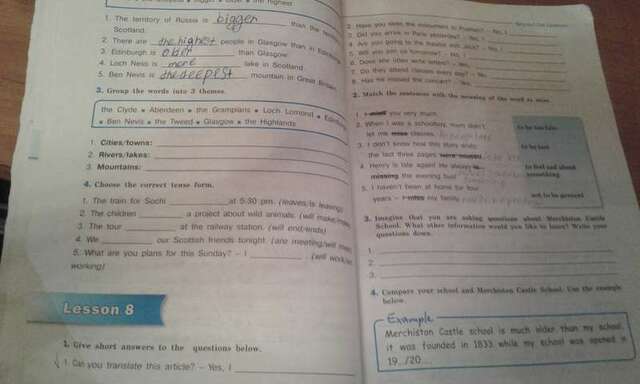 1. The territory of Russia is bigger than the territory
Scotland.
2. There are the highest people in Glasgow than in Edinburgh
3. Edinburgh is older than Glasgow.
4. Loch Ness is more lake in Scotland.
5. Ben Nevis is the deepest mountain in Great Britain
3. Group the words into 3 themes.
the Clyde • Aberdeen • the Grampians • Loch Lomond • Edinburgh
• Ben Nevis • the Tweed • Glasgow • the Highlands
1. Cities/towns:
2. Rivers/lakes:
3. Mountains:
4. Choose the correct tense form.
1. The train for Sochi at 5:30 pm. (leaves/is leaving)
2. The children a project about wild animals. (will make/
3. The tour at the railway station. (will end/ends)
4. We our Scottish friends tonight. (are meeting/will meet)
5. What are you plans for this Sunday? – I (will work/
working)
Lesson 8
1. Give short answers to the questions below.
1. Can you translate this article? – Yes, I
2. Have you sent the documents to – No, I
3. Did you arrive in Paris yesterday? – No, I
4. Are you going to the theatre with – No, I
5. Will you join us tomorrow? – No, I
6. Does she often write letters? – Yes,
7. Do they attend classes every day? – Yes,
8. Has he missed the concert? – Yes,
2. Match the sentences with the meaning of the word to miss.
1. I miss you very much.
2. When I was a schoolboy, mum didn't
let me miss classes.
3. I don't know how this story ends:
the last three pages were missed.
4. Henry is late again! He always is
missing the evening bus!
5. I haven't been at home for four
years – I miss my family
to be too late
to be lost
to feel sad about
something
not to be present
3. Imagine that you are asking questions about Merchiston Castle
School. What other information would you like to know? Write your
questions down.
1
2
3.
4. Compare your school and Merchiston Castle School. Use the example
below.
Example
Merchiston Castle school is much older than my school.
it was founded in 1833 while my school was opened in
19../20...